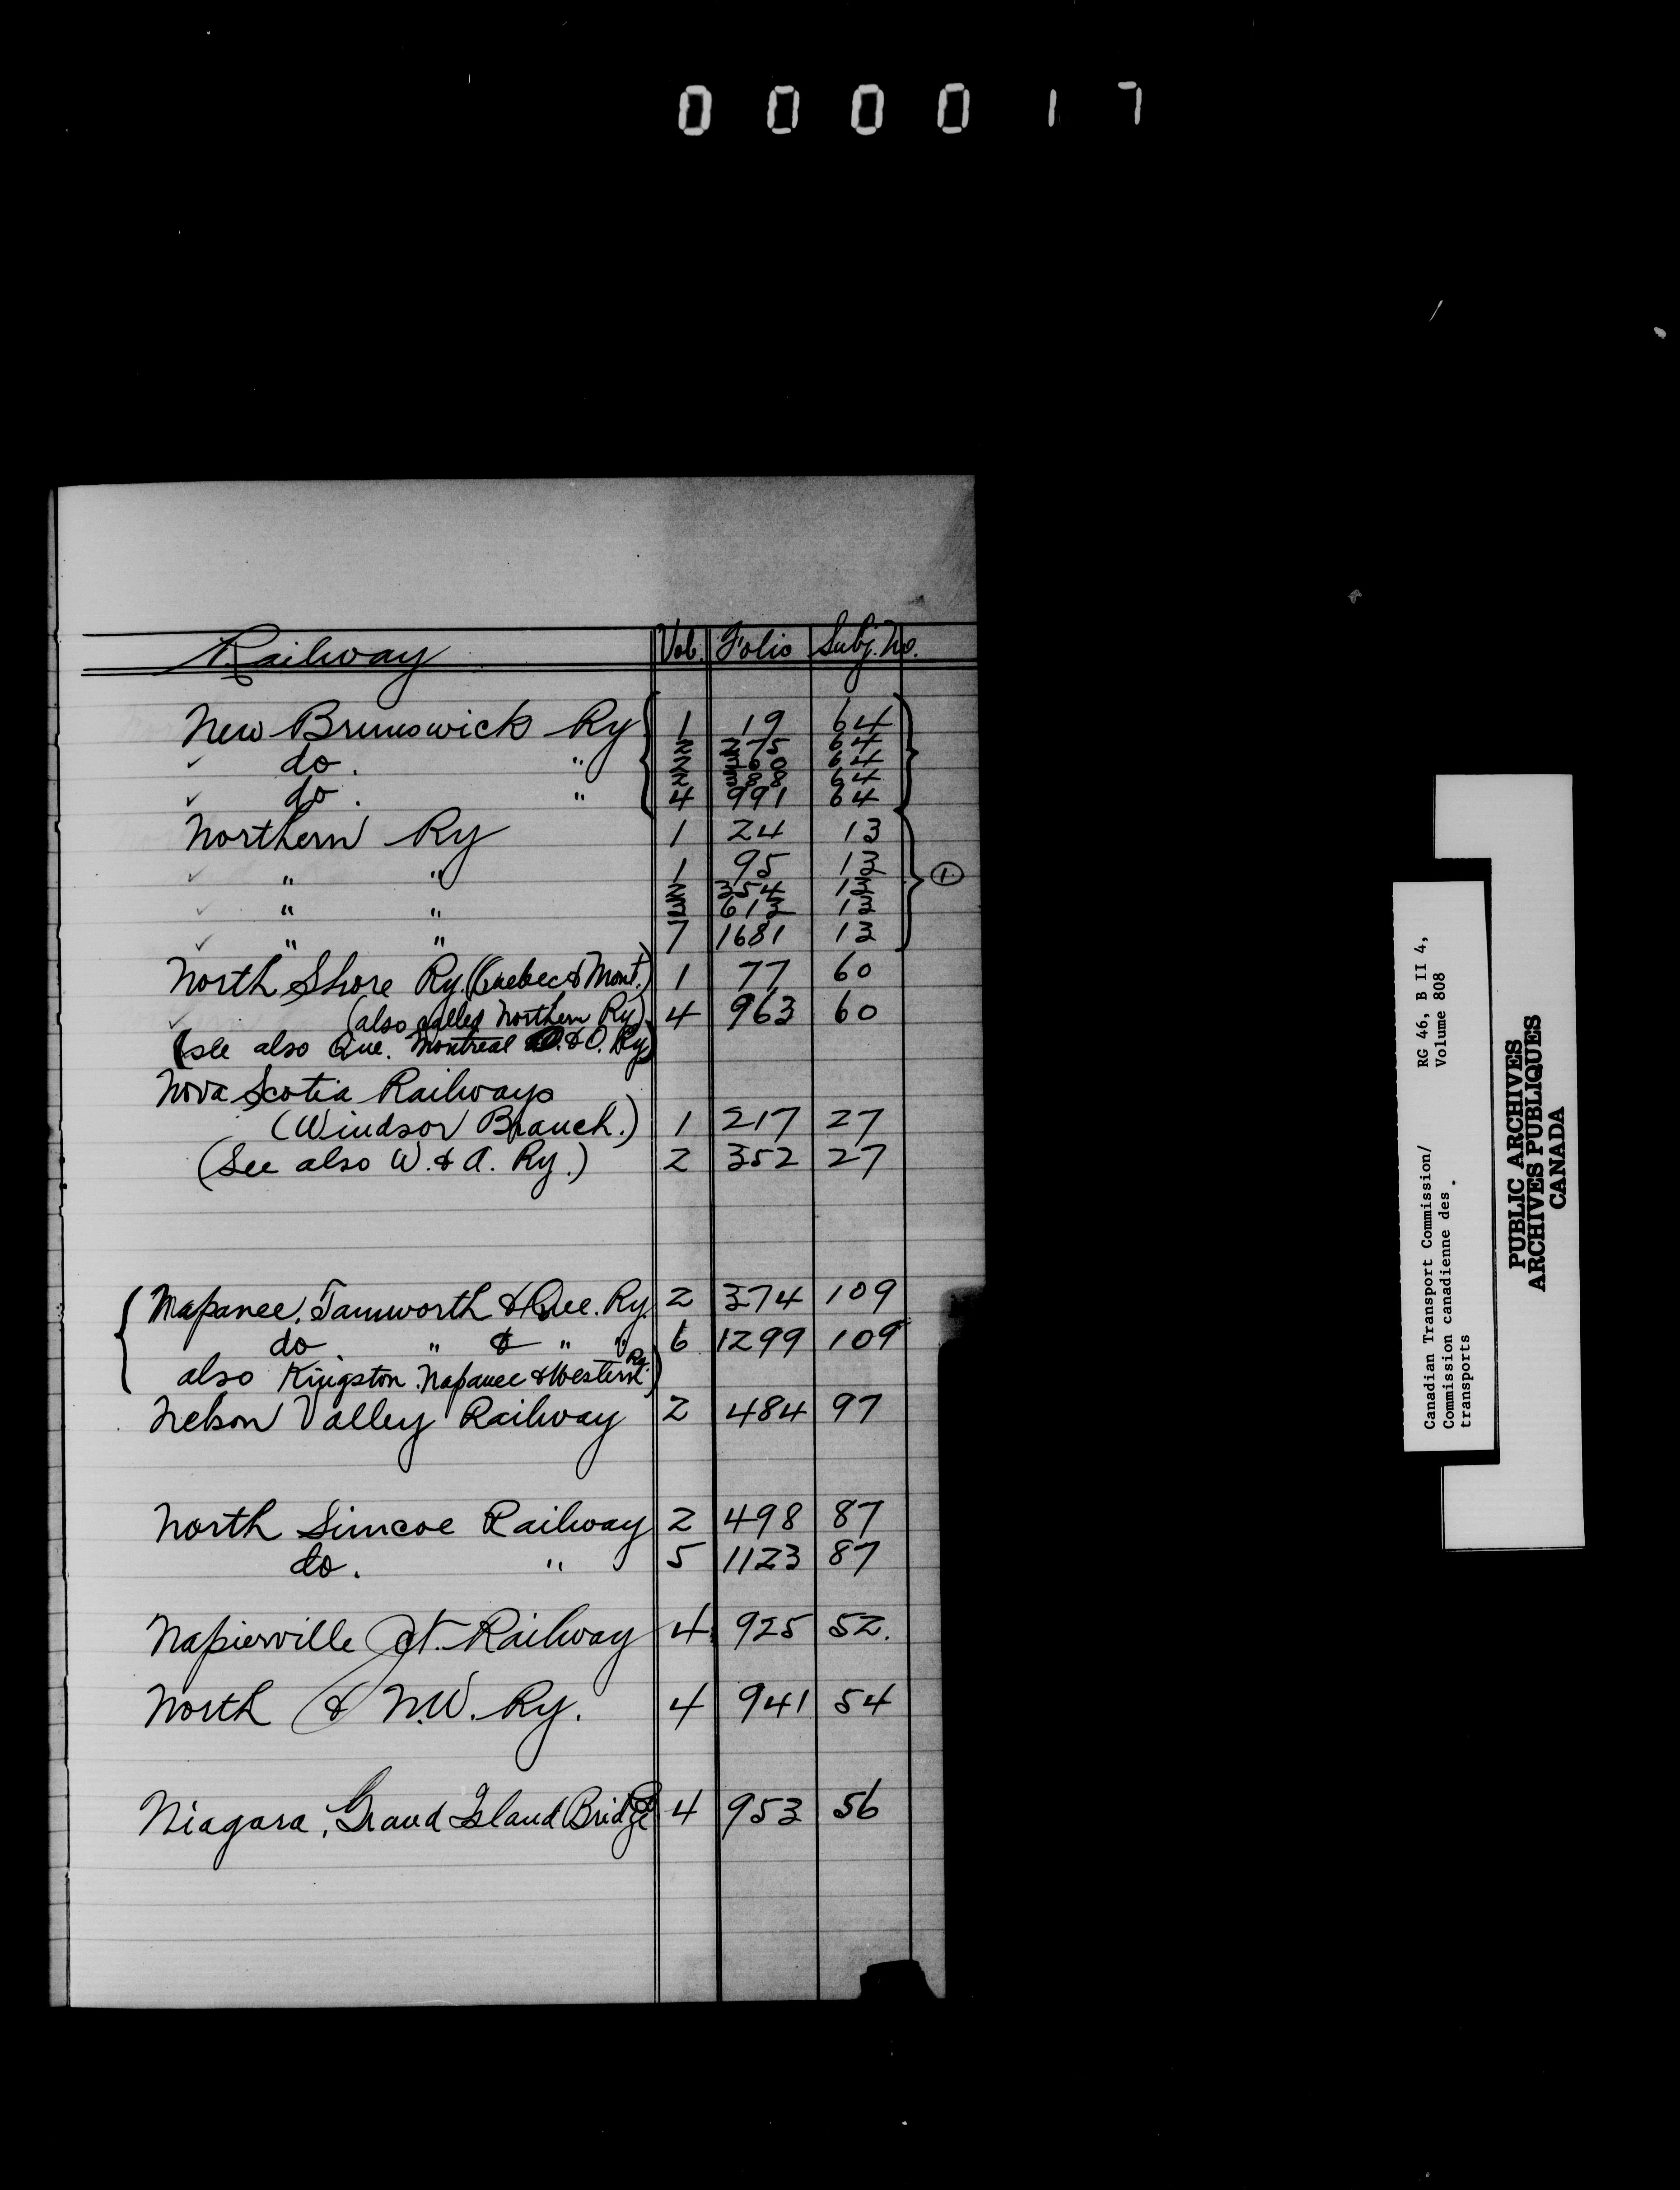 000017
Railway Vol. Folio Subj. No.
New Brunswick Ry 1 19 64
2 275 64
✓ do. " 2 64
2 64
✓ do. " 4 991 64
Northern Ry 1 24 13
✓ " " 1 95 13
2 354 13
✓ " " 613 13
✓ " " 7 1681 13
①
North Shore Ry. (Quebec & Mont.) 1 77 60
✓ (also called Northern Ry) 4 963 60
(see also Que. Montreal O. & O. Ry)
Nova Scotia Railways
(Windsor Branch.) 1 217 27
(See also W. & A. Ry.) 2 352 27
Napanee, Tamworth & Que. Ry. 2 374 109
do " & " " 6 1299 109
also Kingston. Napanee & Western Ry.)
Nelson Valley Railway 2 484 97
North Simcoe Railway 2 498 87
do. " 5 1123 87
Napierville Jct. Railway 4 925 52.
North & N.W. Ry. 4 941 54
Niagara, Grand Island Bridge 4 953 56
Canadian Transport Commission/ RG 46, B II 4,
Commission canadienne des Volume 808
transports
PUBLIC ARCHIVES
ARCHIVES PUBLIQUES
CANADA